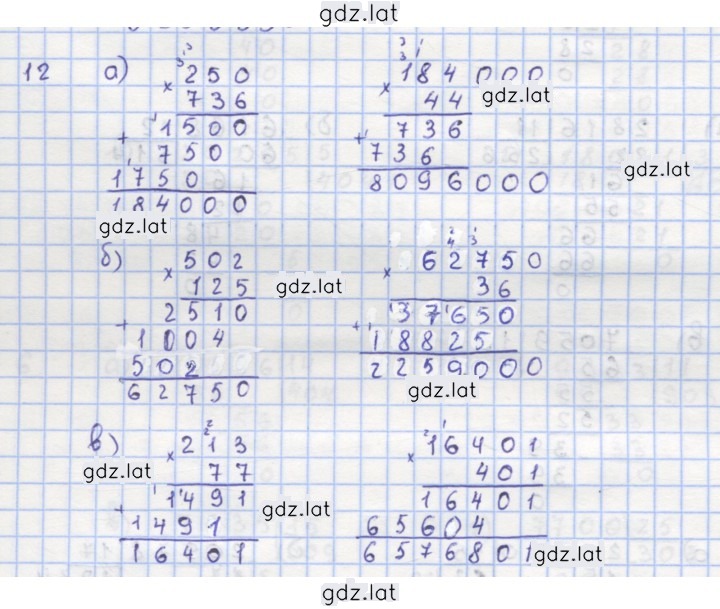 gdz.lat
12 а) × 250 × 184 000
736 44 gdz.lat
+ 1500 + 736
750 736 gdz.lat
1750 8096000
184000
gdz.lat
б) × 502 × 62750
125 gdz.lat 36
+ 2510 + 37650
1004 18825
502 2259000
62750 gdz.lat
в) × 213 × 16401
gdz.lat 77 401
+ 1491 gdz.lat 16401
1491 65604
16401 6576801 gdz.lat
gdz.lat